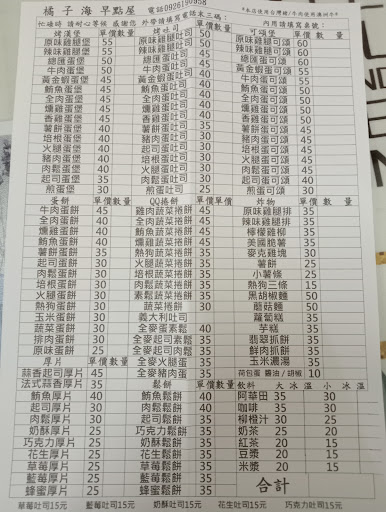 橘子海 早點屋 電話0926190958
忙碌時 請耐心等候 感謝您 外帶請填寫電話末三碼: 內用請填寫桌號:
*本店使用台灣豬/牛肉使用澳洲牛*
烤漢堡 單價 數量 烤吐司 單價數量 可頌堡 單價 數量
原味雞腿堡 55 原味雞腿吐司 50 原味雞腿可頌 60
辣味雞腿堡 55 辣味雞腿吐司 50 辣味雞腿可頌 60
總匯蛋堡 總匯蛋吐司 總匯蛋可頌
牛肉蛋堡 牛肉蛋吐司 牛肉蛋可頌
黃金蝦蛋堡 黃金蝦蛋吐司 黃金蝦蛋可頌
鮪魚蛋堡 鮪魚蛋吐司 鮪魚蛋可頌
全肉蛋堡 全肉蛋吐司 全肉蛋可頌
燻雞蛋堡 燻雞蛋吐司 燻雞蛋可頌
香雞蛋堡 香雞蛋吐司 香雞蛋可頌
薯餅蛋堡 薯餅蛋吐司 薯餅蛋可頌
豬肉蛋堡 豬肉蛋吐司 豬肉蛋可頌
培根蛋堡 培根蛋吐司 培根蛋可頌
火腿蛋堡 火腿蛋吐司 火腿蛋可頌
肉鬆蛋堡 肉鬆蛋吐司 肉鬆蛋可頌
起司蛋堡 35 起司蛋吐司 起司蛋可頌 40
煎蛋堡 30 煎蛋吐司 25 煎蛋可頌
蛋餅 單價數量 QQ捲餅 單價單價 炸物 單價 數量
牛肉蛋餅 45 雞肉蔬菜捲餅 原味雞腿排 35
全肉蛋餅 40 全肉蔬菜捲餅 辣味雞腿排 35
燻雞蛋餅 40 燻雞蔬菜捲餅 檸檬雞柳 35
鮪魚蛋餅 40 鮪魚蔬菜捲餅 美國脆薯 35
薯餅蛋餅 35 熱狗蔬菜捲餅 麥克雞塊 30
起司蛋餅 30 起司蔬菜捲餅 薯餅 25
肉鬆蛋餅 30 肉鬆蔬菜捲餅 小薯條 25
培根蛋餅 30 培根蔬菜捲餅 熱狗三條 15
火腿蛋餅 30 火腿蔬菜捲餅 黑胡椒麵 50
熱狗蛋餅 30 蔬菜捲餅 蘑菇麵 50
玉米蛋餅 30 義大利吐司 蘿蔔糕 35
蔬菜蛋餅 30 全麥蛋素鬆 40 芋糕 35
排肉蛋餅 全麥起司素鬆 翡翠抓餅 35
原味蛋餅 25 全麥起司熱狗 鮮肉抓餅 35
厚片 單價數量 全麥火腿蛋 玉米濃湯 35
蒜香起司厚片 45 全麥豬肉蛋 荷包蛋 醬油/胡椒 10
法式蒜香厚片 35 鬆餅 單價數量 飲料 大 冰 溫 小 冰 溫
鮪魚厚片 鮪魚鬆餅 40 阿華田 35 30
起司厚片 30 起司鬆餅 40 咖啡 35 30
肉鬆厚片 30 肉鬆鬆餅 40 柳橙汁 30 25
奶酥厚片 25 巧克力鬆餅 奶茶 25 20
巧克力厚片 25 奶酥鬆餅 35 紅茶 20 15
花生厚片 25 花生鬆餅 35 豆漿 20 15
草莓厚片 25 草莓鬆餅 35 米漿 20 15
藍莓厚片 25 藍莓鬆餅 35 合計
蜂蜜厚片 25 蜂蜜鬆餅 35
草莓吐司15元 藍莓吐司15元 奶酥吐司15元 花生吐司15元 巧克力吐司15元